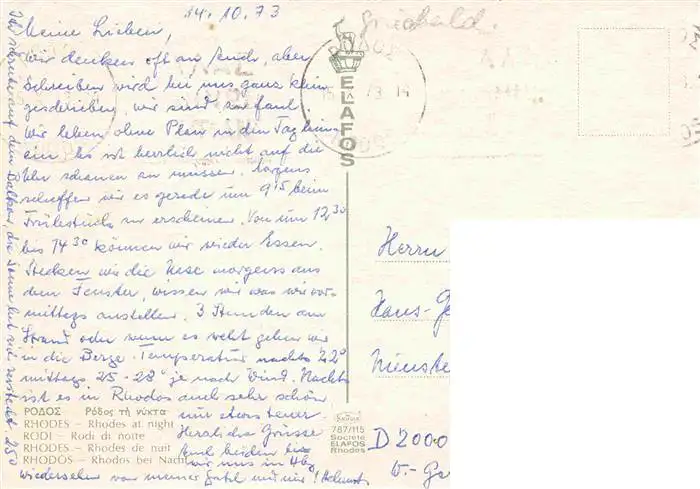 14.10.73
Meine Lieben,
wir denken oft an Euch, aber
Schreiben wird bei uns ganz klein
geschrieben, wir sind zu faul.
Wir leben ohne Plan in den Tag hinein
ein. Es ist herrlich nicht auf die
Uhr schauen zu müssen. Morgens
schaffen wir es gerade um 9 15 beim
Frühstück zu erscheinen. Von um 12,30
bis 14 30 können wir wieder Essen.
Stecken wir die Nase morgens aus
dem Fenster, wissen wir was wir vor-
mittags anstellen. 3 Stunden am
Strand oder wenn es weht gehen wir
in die Berge. Temperatur nachts 22°
mittags 25-28° je nach Wind. Nachts
ist es in Rhodos auch sehr schön,
nur etwas teuer.
Herzliche Grüsse
Euch beiden bis
wir uns in
wiedersehen von meiner und mir! Helmut
Ich schreibe auf dem Balkon, die Sonne hat sich versteckt. 25°
ΡΟΔΟΣ – Ρόδος τή νύκτα
RHODES – Rhodes at night
RODI – Rodi di notte
RHODES – Rhodes de nuit
RHODOS – Rhodos bei Nacht
ELAFOS
787/115
Société
ELAFOS
Rhodes
Herrn
Hans-Ge
Nienste
D 2000